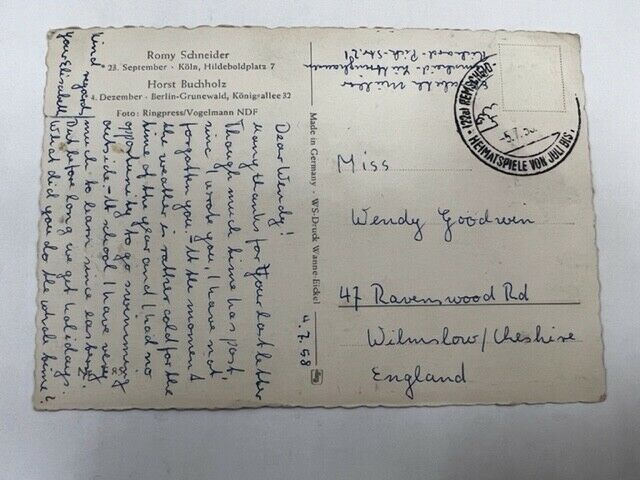 Romy Schneider
* 23. September · Köln, Hildeboldplatz 7
Horst Buchholz
4. Dezember · Berlin-Grunewald, Königsallee 32
Foto: Ringpress/Vogelmann NDF
Dear Wendy!
Many thanks for your last letter
Though much time has past,
since I wrote you, I have not
forgotten you. At the moment
the weather is rather cold for the
time of the year and I had no
opportunity to go swimming
outside. At school I have very
much to learn since eastern.
But before long we get holidays.
What did you do the whole time?
kind regards
your Elisabeth
4.7.58
Made in Germany · WS-Druck Wanne-Eickel
Elisabeth Müller
Richard-Pick-Str. 21
(22a) REMSCHEID
HEIMATSPIELE VON JULI BIS
Miss
Wendy Goodwin
47 Ravenswood Rd
Wilmslow/Cheshire
England